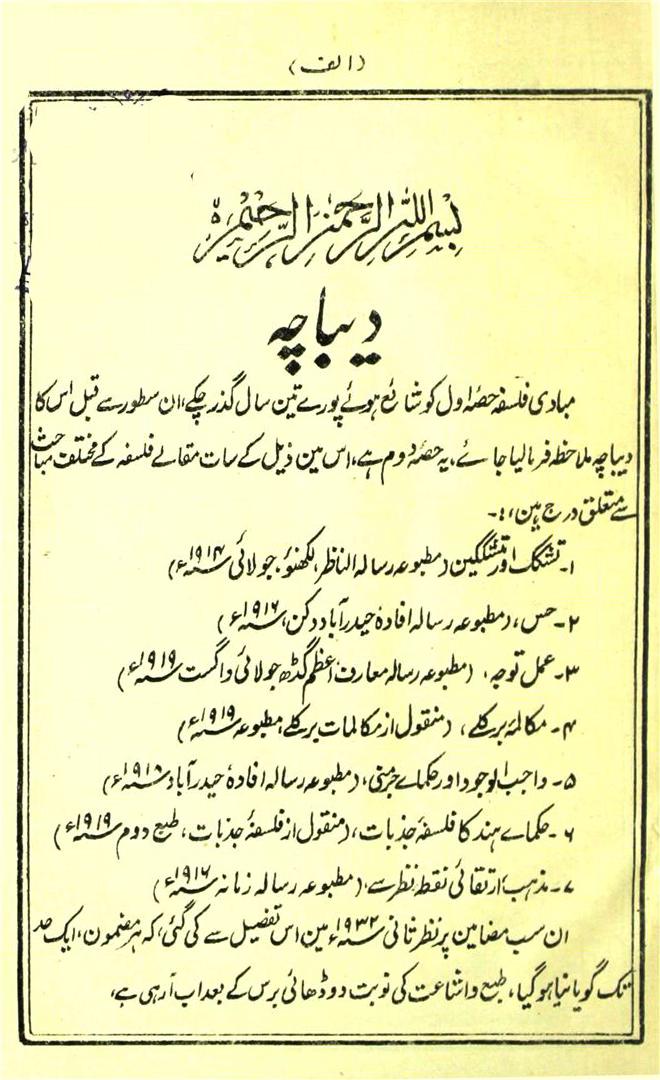 (الف)
بسم اللہ الرحمن الرحیم ہ
دیباچہ
مبادی فلسفہ حصۂ اول کو شائع ہوئے پورے تین سال گذر چکے، ان سطور سے قبل اس کا
دیباچہ ملاحظہ فرما لیا جائے، یہ حصۂ دوم ہے، اس مین ذیل کے سات مقالے فلسفہ کے مختلف مباحث
سے متعلق درج ہین،:۔
۱۔ تشکک اور متشککین (مطبوعہ رسالہ الناظر لکھنؤ، جولائی ۱۹۱۴ء)
۲۔ حس، (مطبوعہ رسالہ افادۂ حیدرآباد دکن، ۱۹۱۶ء)
۳۔ عمل توجہ، (مطبوعہ رسالہ معارف اعظم گڈھ جولائی و اگست ۱۹۱۹ء)
۴۔ مکالمۂ برکلے، (منقول از مکالمات برکلے، مطبوعہ ۱۹۱۹ء)
۵۔ واجب الوجود اور حکماے جرمنی، (مطبوعہ رسالہ افادۂ حیدرآباد ۱۹۱۸ء)
۶۔ حکماے ہند کا فلسفۂ جذبات، (منقول از فلسفۂ جذبات، طبع دوم ۱۹۱۹ء)
۷۔ مذہب ارتقائی نقطۂ نظر سے، (مطبوعہ رسالہ زمانہ ۱۹۱۶ء)
ان سب مضامین پر نظر ثانی ۱۹۳۲ء مین اس تفصیل سے کی گئی، کہ ہر مضمون، ایک حد
تک گویا نیا ہو گیا، طبع و اشاعت کی نوبت دو ڈھائی برس کے بعد اب آ رہی ہے،